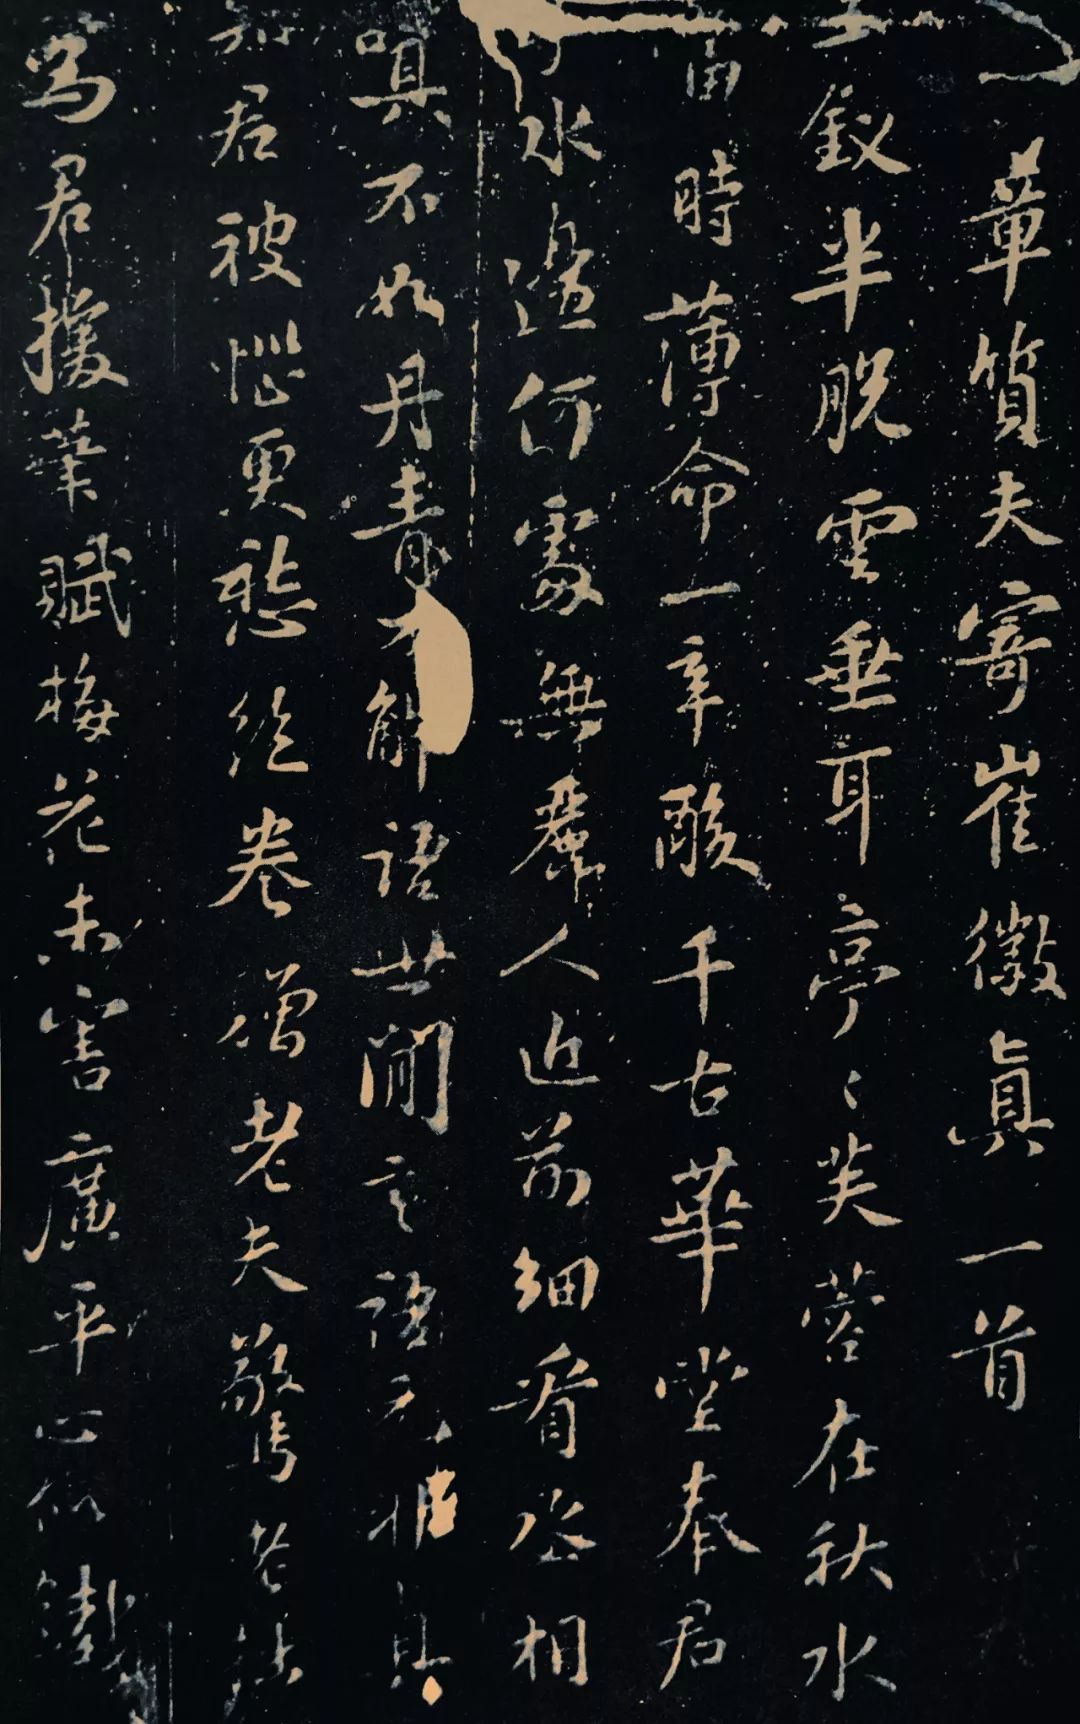 章質夫寄崔徽真一首
玉釵半脫雲垂耳亭〻芙蓉在秋水
當時薄命一辛酸千古華堂奉君
子水邊何處無麗人近前細看丞相
嗔不如丹青不解語世間言語元真
知君被惱更愁絕卷贈老夫驚老拙
爲君援筆賦梅花未害廣平心似鐵